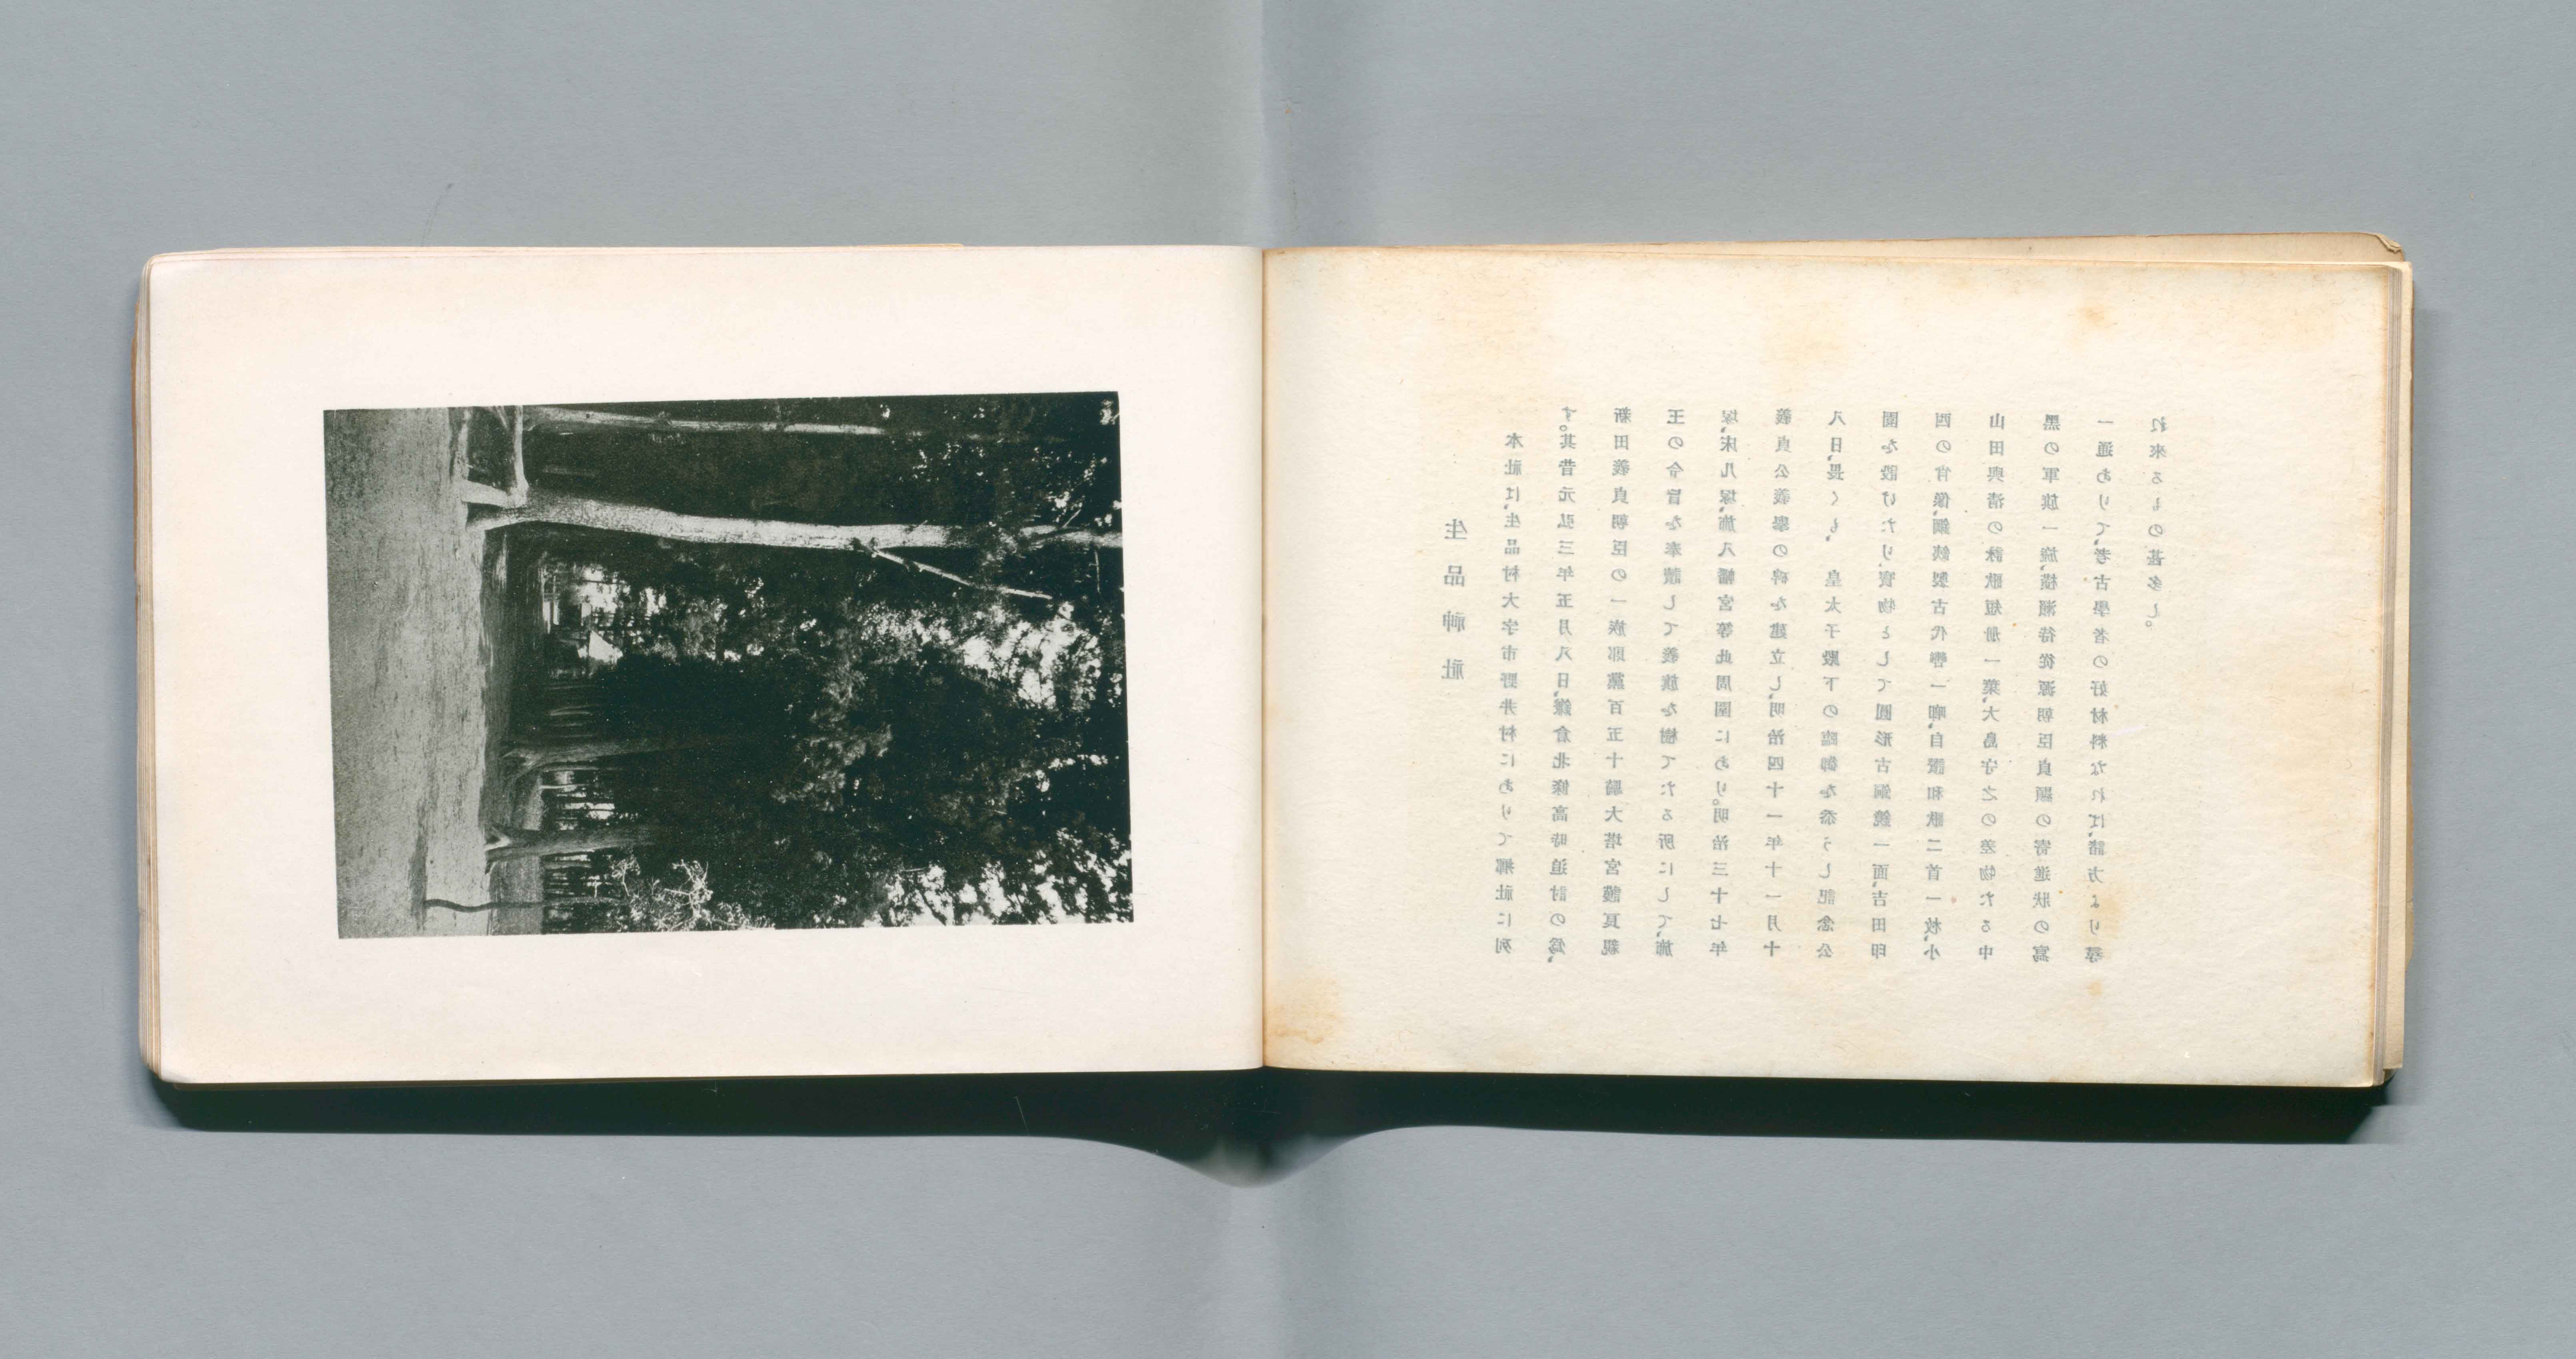 生品神社
本社は、生品村大字市野井村にありて郷社に列
す。其昔元弘三年五月八日、鎌倉北條高時追討の爲、
新田義貞朝臣の一族郎黨百五十騎大塔宮護良親
王の令旨を奉讀して義旗を樹てたる所にして、旗
塚、床几塚、旗八幡宮等此周圍にあり。明治三十七年
義貞公義擧の碑を建立し、明治四十一年十一月十
八日、畏くも、　皇太子殿下の臨御を忝うし記念公
園を設けたり、寳物として圓形古銅鏡一面、吉田印
西の肖像、鋼鐵製古代轡一啣、自讃和歌二首一枚、小
山田與淸の詠歌短册一葉、大島守之の差物たる中
黒の軍旗一旒、横瀬待從源朝臣貞顯の寄進狀の寫
一通ありて、考古學者の好材料なれば、諸方より尋
れ來るもの甚多し。